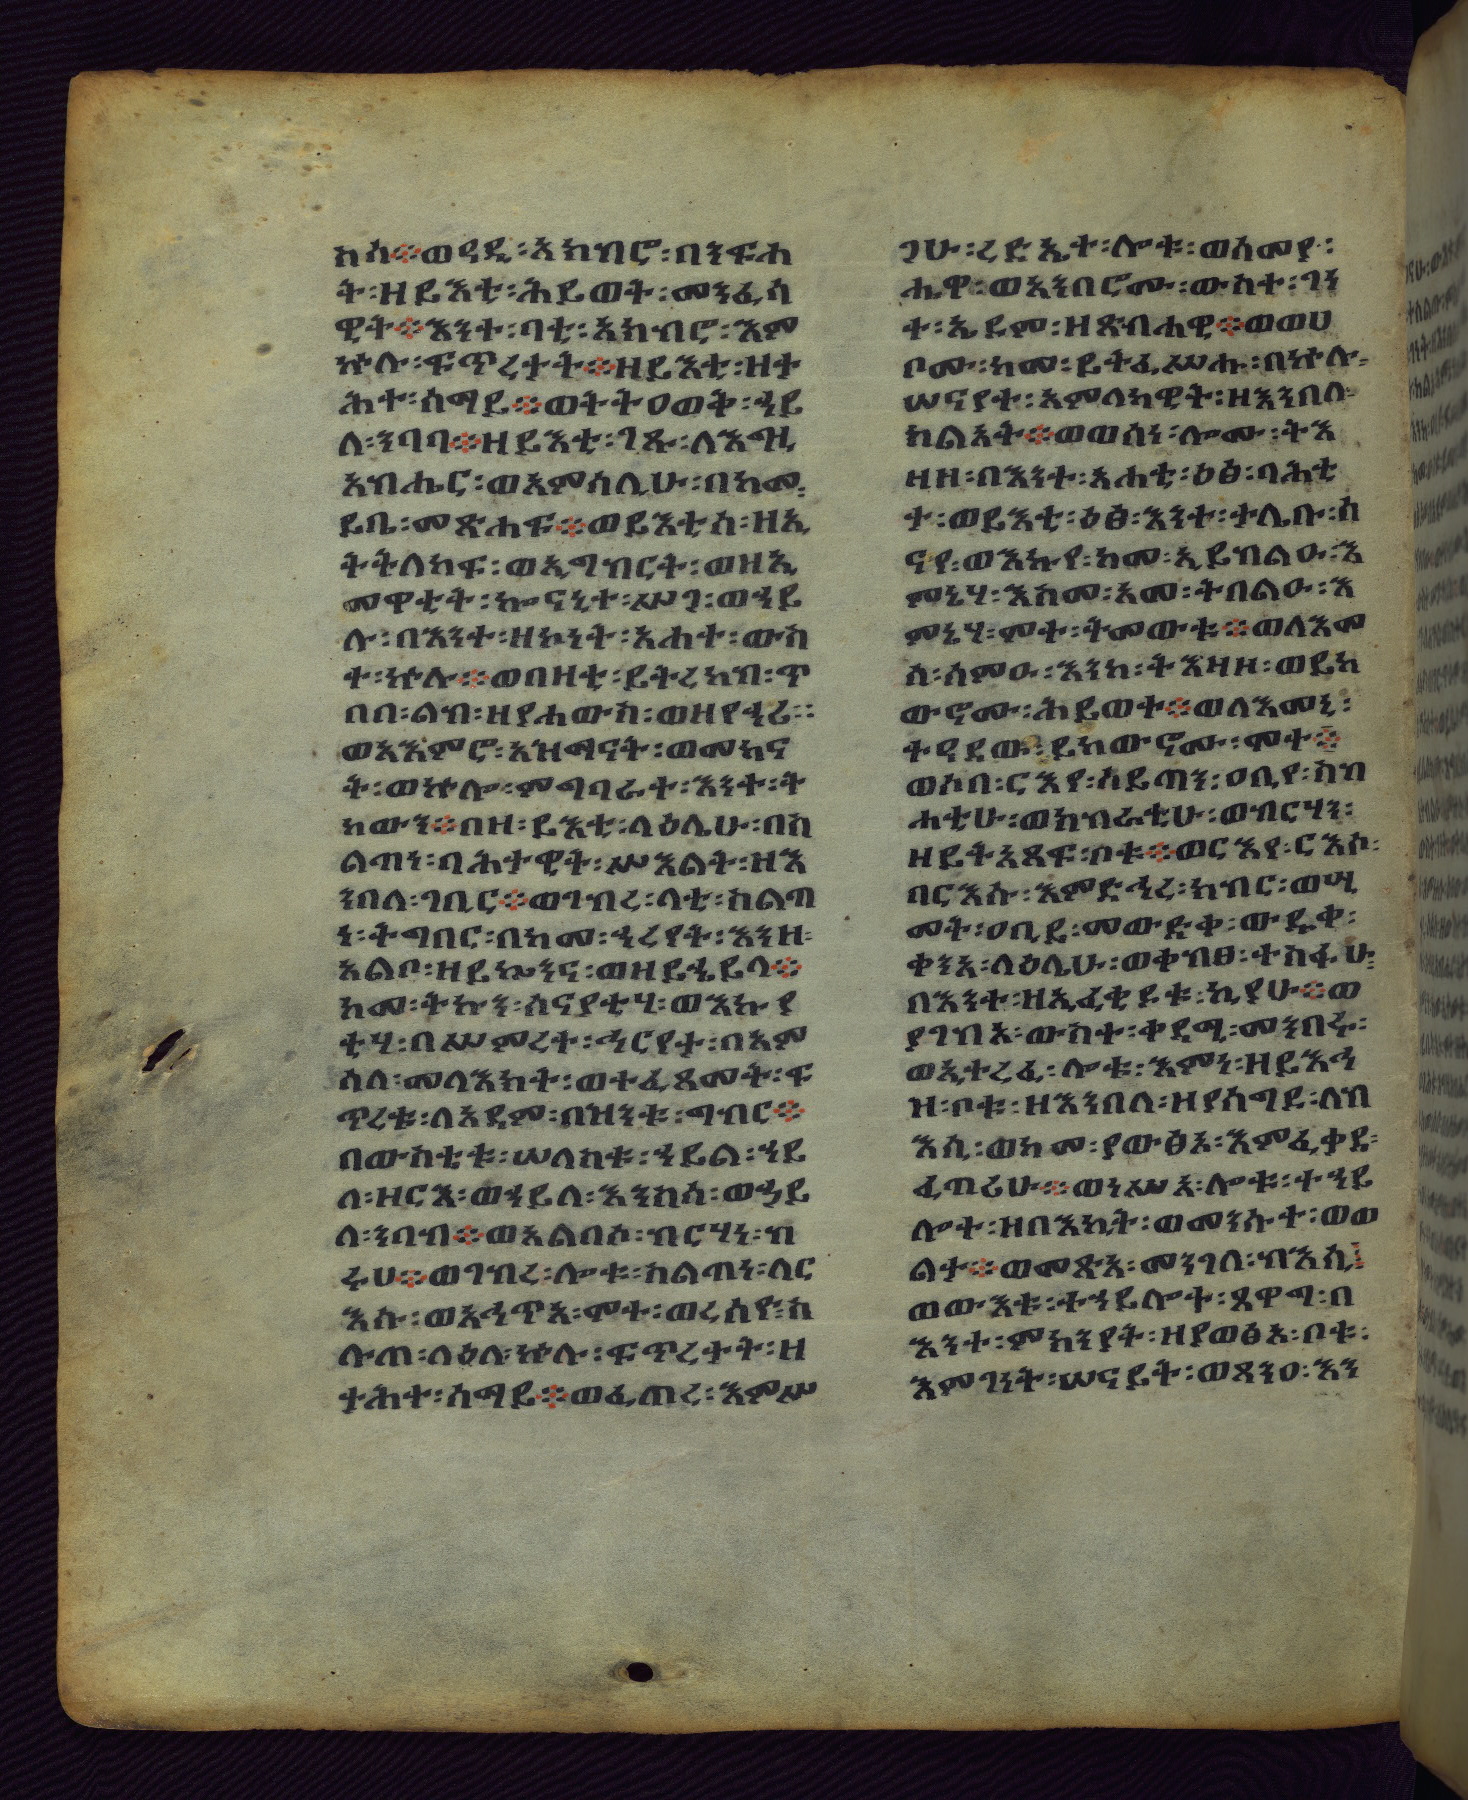 ከሰ፨ወዳዲ፡አክብሮ፡በንፍሐ
ት፡ዘይእቲ፡ሕይወት፡መንፈሳ
ዊት፨እንተ፡ባቲ፡አክብሮ፡እም
ኵሉ፡ፍጥረታት፨ዘይእቲ፡ዘታ
ሕተ፡ሰማይ፨ወትትዐወቅ፡ኀይ
ለ፡ንባባ፨ዘይእቲ፡ገጹ፡ለእግዚ
አብሔር፡ወአምሳሊሁ፡በከመ፡
ይቤ፡መጽሐፍ፨ወይእቲሰ፡ዘኢ
ትትለከፍ፡ወኢግብርት፡ወዘኢ
መዋቲት፡ኰናኒተ፡ሥጋ፡ወኀይ
ሉ፡በእንተ፡ዘኮነት፡አሐተ፡ውስ
ተ፡ኵሉ፨ወበዘቲ፡ይትረከብ፡ጥ
በበ፡ልብ፡ዘያሐውስ፡ወዘየኀሪ፡፡
ወአእምሮ፡አዝማናት፡ወመካና
ት፡ወኵሎ፡ምግባራት፡እንተ፡ት
ከውን፨በዛ፡ይእቲ፡ላዕሌሁ፡በስ
ልጣነ፡ባሕታዊት፡ሥእልት፡ዘእ
ንበለ፡ገቢር፨ወገብረ፡ላቲ፡ስልጣ
ነ፡ትግበር፡በከመ፡ኀረየት፡እንዘ፡
አልቦ፡ዘይኴንና፡ወዘይኄይላ፨
ከመ፡ትኩን፡ሰናያቲሃ፡ወእኩያ
ቲሃ፡በሥምረተ፡ኅርየታ፡በአም
ሳለ፡መላእክት፡ወተፈጸመት፡ፍ
ጥረቱ፡ለአዳም፡በዝንቱ፡ግብር፨
በውስቲቱ፡ሠለስቱ፡ኀይል፡ኀይ
ለ፡ዘርእ፡ወኀይለ፡እንስሳ፡ወኃይ
ለ፡ንባብ፨ወአልበሶ፡ብርሃነ፡ብ
ሩህ፨ወገብረ፡ሎቱ፡ስልጣነ፡ላር
እሱ፡ወአኅጥአ፡ሞተ፡ወረሰዮ፡ስ
ሉጠ፡ላዕለ፡ኵሉ፡ፍጥረታት፡ዘ
ታሕተ፡ሰማይ፨ወፈጠረ፡እምሥ
ጋሁ፡ረድኢተ፡ሎቱ፡ወሰመያ፡
ሔዋ፡ወአንበሮሙ፡ውስተ፡ገነ
ተ፡ኤዶም፡ዘጽባሐዊ፨ወወሀ
ቦሙ፡ከመ፡ይትፈሥሑ፡በኵሉ፡
ሠናያት፡አምላካዊት፡ዘእንበለ፡
ከልአት፨ወወሰነ፡ሎሙ፡ትእ
ዛዘ፡በእንተ፡አሐቲ፡ዕፅ፡ባሕቲ
ታ፡ወይእቲ፡ዕፅ፡እንተ፡ታሌቡ፡ሰ
ናየ፡ወእኩየ፡ከመ፡ኢይብልዑ፡እ
ምኔሃ፡እስመ፡አመ፡ትበልዑ፡እ
ምኔሃ፡ሞተ፡ትመውቱ፨ወለእመ
ሰ፡ሰምዑ፡እንከ፡ትእዛዘ፡ወይከ
ውኖሙ፡ሕይወተ፨ወለእመኒ፡
ተዳደወ፡ይከውኖሙ፡ሞተ፨
ወሶበ፡ርእየ፡ሰይጣን፡ዐቢየ፡ስብ
ሐቲሁ፡ወክብራቲሁ፡ወብርሃነ፡
ዘይትአጸፍ፡ቦቱ፨ወርእየ፡ርእሶ፡
ባርእሱ፡እምድኅረ፡ክብር፡ወሢ
መት፡ዐቢይ፡መውድቀ፡ውዱቀ፡
ቀንአ፡ላዕሌሁ፡ወቀብፀ፡ተስፋሁ፡
በእንተ፡ዘኢፈቂዶቱ፡ኪያሁ፨ወ
ያገብአ፡ውስተ፡ቀዳሚ፡መንበሩ፡
ወኢተረፈ፡ሎቱ፡እምነ፡ዘይእኅ
ዝ፡ቦቱ፡ዘእንበለ፡ዘያስግድ፡ለብ
እሲ፡ወከመ፡ያውፅአ፡እምፈቃደ፡
ፈጣሪሁ፨ወነሥአ፡ሎቱ፡ተኀይ
ሎተ፡ዘበእከት፡ወመንሱተ፡ወወ
ልታ፨ወመጽአ፡መንገለ፡ብእሲ፡
ወውእቱ፡ተኀይሎት፡ጸዋግ፡በ
እንተ፡ምክንያት፡ዘያወፅአ፡ቦቱ፡
እምገነት፡ሠናይት፡ወጸንዐ፡እን